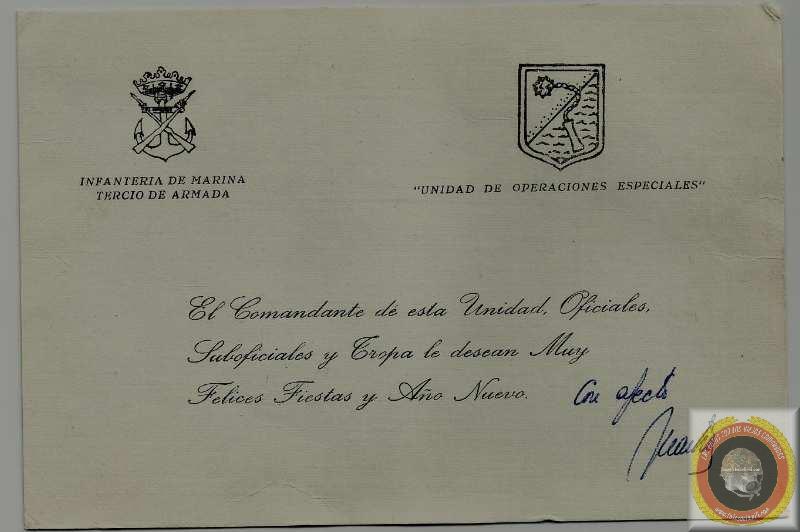 INFANTERIA DE MARINA
TERCIO DE ARMADA
"UNIDAD DE OPERACIONES ESPECIALES"
El Comandante de esta Unidad, Oficiales,
Suboficiales y Tropa le desean Muy
Felices Fiestas y Año Nuevo.
Con afecto